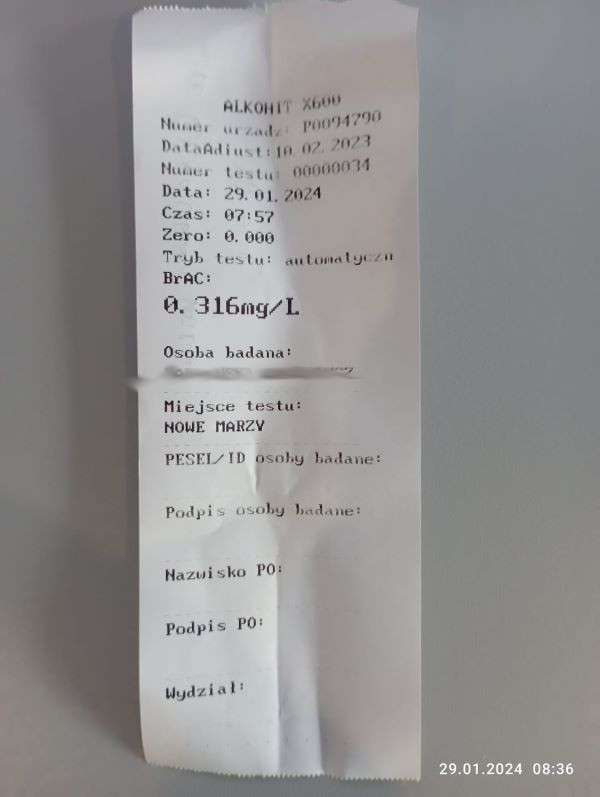 ALKOHIT X600
Numer urzadz: P0094790
DataAdiust:10.02.2023
Numer testu: 00000034
Data: 29.01.2024
Czas: 07:57
Zero: 0.000
Tryb testu: automatyczn
BrAC:
0.316mg/L
Osoba badana:
Miejsce testu:
NOWE MARZY
PESEL/ID osoby badane:
Podpis osoby badane:
Nazwisko PO:
Podpis PO:
Wydział:
29.01.2024 08:36